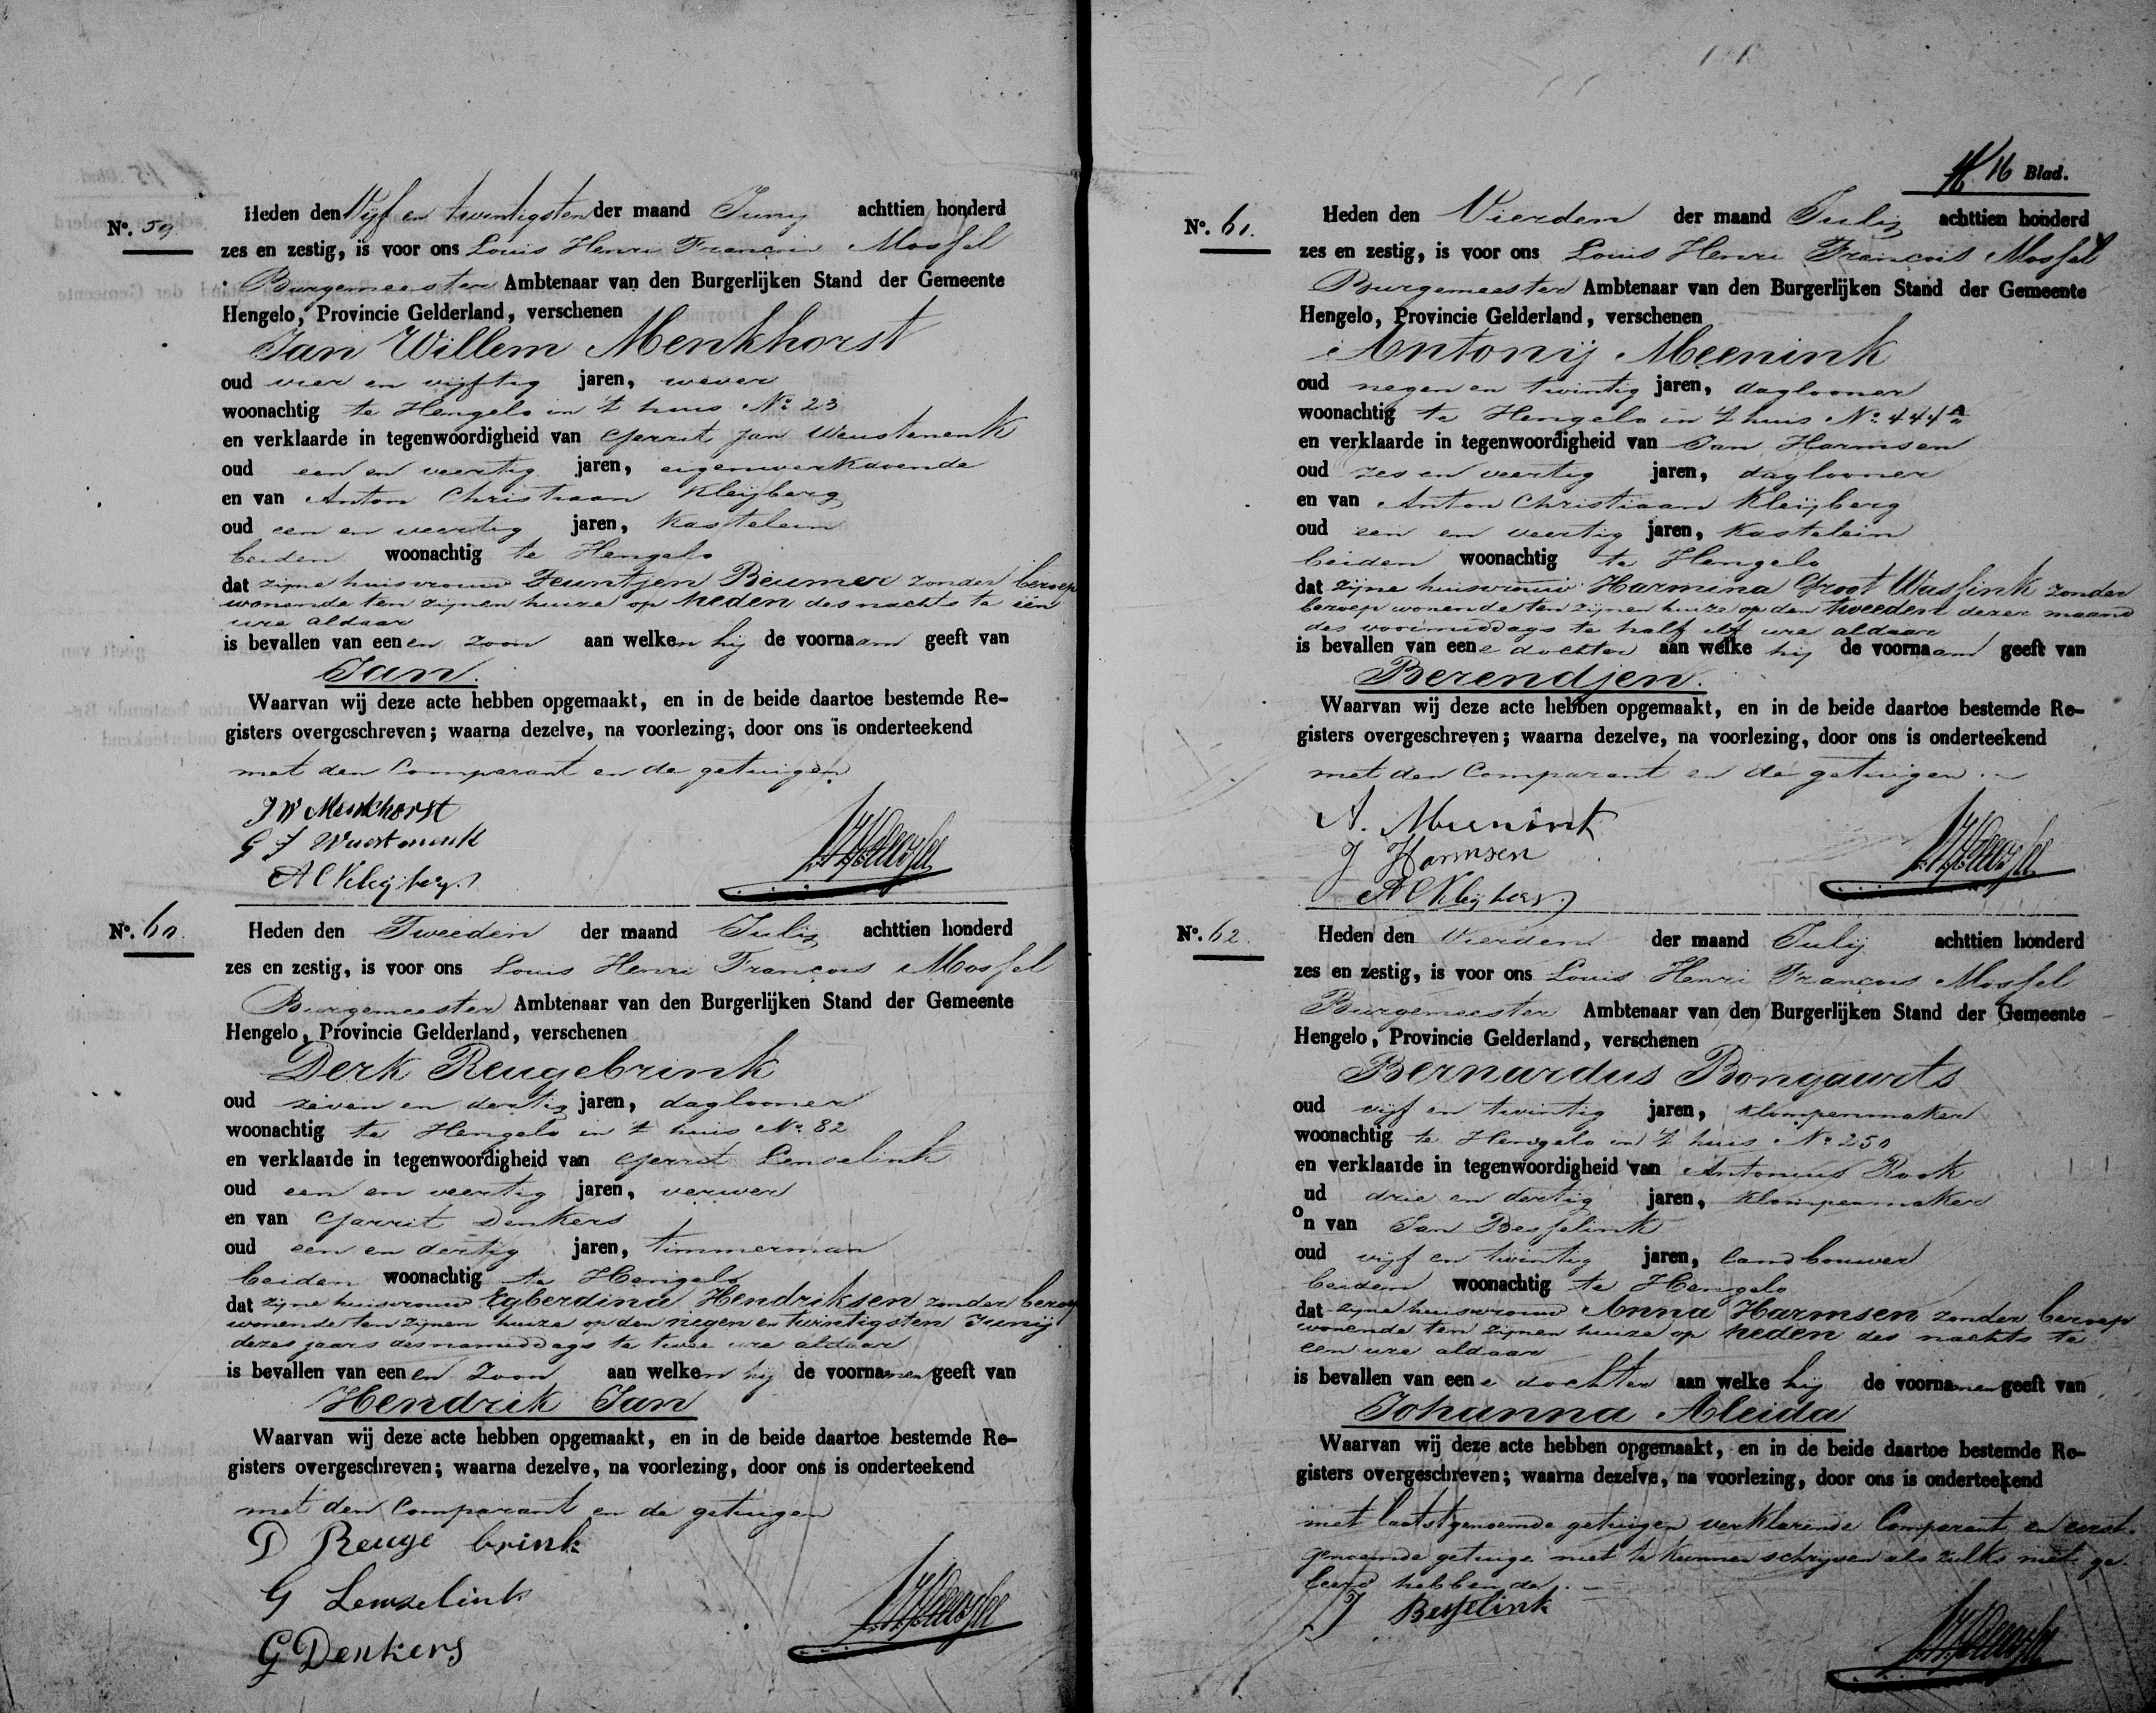 No. 59
Heden den Vijf en twintigsten der maand Junij achttien honderd
zes en zestig, is voor ons Louis Henri François Mosfel
Burgemeester Ambtenaar van den Burgerlijken Stand der Gemeente
Hengelo, Provincie Gelderland, verschenen
Jan Willem Menkhorst
oud vier en vijftig jaren, wever
woonachtig te Hengelo in 't huis No 23
en verklaarde in tegenwoordigheid van Gerrit Jan Weustenenk
oud een en veertig jaren, eigenwerkdoende
en van Anton Christiaan Kleijberg
oud een en veertig jaren, Kastelein
beiden woonachtig te Hengelo
dat zijne huisvrouw Teuntjen Beumer zonder beroep
wonende ten zijnen huize op heden des nachts te een
ure aldaar
is bevallen van eenen zoon aan welken hij de voornaam geeft van
Jan.
Waarvan wij deze acte hebben opgemaakt, en in de beide daartoe bestemde Re-
gisters overgeschreven; waarna dezelve, na voorlezing, door ons is onderteekend
met den Comparant en de getuigen
J W Menkhorst
G J Wuestenenk
A C Kleijberg
No. 60.
Heden den Tweeden der maand Julij achttien honderd
zes en zestig, is voor ons Louis Henri François Mosfel
Burgemeester Ambtenaar van den Burgerlijken Stand der Gemeente
Hengelo, Provincie Gelderland, verschenen
Derk Reugebrink
oud zeven en dertig jaren, daglooner
woonachtig te Hengelo in 't huis No. 82
en verklaarde in tegenwoordigheid van Gerrit Lenselink
oud een en veertig jaren, verwer
en van Garrit Denkers
oud een en dertig jaren, timmerman
beiden woonachtig te Hengelo
dat zijne huisvrouw Egberdina Hendriksen zonder beroep
wonende ten zijnen huize op den negen en twintigsten Junij
dezes jaars des namiddags te twee ure aldaar
is bevallen van eenen zoon aan welken hij de voornamen geeft van
Hendrik Jan
Waarvan wij deze acte hebben opgemaakt, en in de beide daartoe bestemde Re-
gisters overgeschreven; waarna dezelve, na voorlezing, door ons is onderteekend
met den Comparant en de getuigen
D Reuge brink
G Lenselink
G Denkers
16 Blad.
No. 61.
Heden den Vierden der maand Julij achttien honderd
zes en zestig, is voor ons Louis Henri François Mosfel
Burgemeester Ambtenaar van den Burgerlijken Stand der Gemeente
Hengelo, Provincie Gelderland, verschenen
Antonij Meenink
oud negen en twintig jaren, daglooner
woonachtig te Hengelo in 't huis No. 444 A
en verklaarde in tegenwoordigheid van Jan Harmsen
oud zes en veertig jaren, daglooner
en van Anton Christiaan Kleijberg
oud een en veertig jaren, Kastelein
beiden woonachtig te Hengelo
dat zijne huisvrouw Harmina Groot Wasfink zonder
beroep wonende ten zijnen huize op den tweeden dezer maand
des voormiddags te half elf ure aldaar
is bevallen van eene dochter aan welke hij de voornaam geeft van
Berendjen.
Waarvan wij deze acte hebben opgemaakt, en in de beide daartoe bestemde Re-
gisters overgeschreven; waarna dezelve, na voorlezing, door ons is onderteekend
met den Comparant en de getuigen.
A. Meenink
J Harmsen
A C Kleijberg
No. 62.
Heden den Vierden der maand Julij achttien honderd
zes en zestig, is voor ons Louis Henri François Mosfel
Burgemeester Ambtenaar van den Burgerlijken Stand der Gemeente
Hengelo, Provincie Gelderland, verschenen
Bernardus Bongaarts
oud vijf en twintig jaren, Klompenmaker
woonachtig te Hengelo in 't huis No 250
en verklaarde in tegenwoordigheid van Antonius Rook
oud drie en dertig jaren, Klompenmaker
n van Jan Besselink
oud vijf en twintig jaren, landbouwer
beiden woonachtig te Hengelo
dat zijne huisvrouw Anna Harmsen zonder beroep
wonende ten zijnen huize op heden des nachts te
een ure aldaar
is bevallen van eene dochter aan welke hij de voornamen geeft van
Johanna Aleida
Waarvan wij deze acte hebben opgemaakt, en in de beide daartoe bestemde Re-
gisters overgeschreven; waarna dezelve, na voorlezing, door ons is onderteekend
met laatstgenoemde getuigen verklarende Comparant en eerst-
genoemde getuige niet te kunnen schrijven als zulks niet ge-
leerd hebbende.
J Besselink